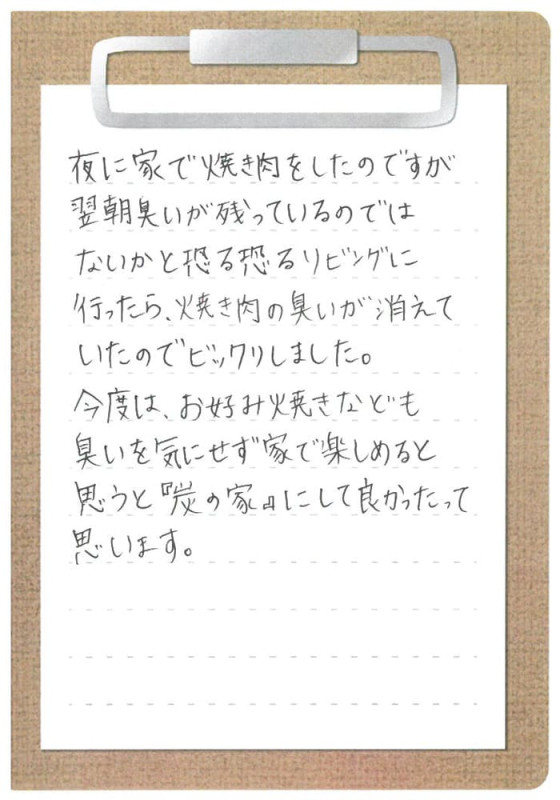 夜に家で焼き肉をしたのですが
翌朝臭いが残っているのでは
ないかと恐る恐るリビングに
行ったら、焼き肉の臭いが消えて
いたのでビックリしました。
今度は、お好み焼きなども
臭いを気にせず家で楽しめると
思うと『炭の家』にして良かったって
思います。